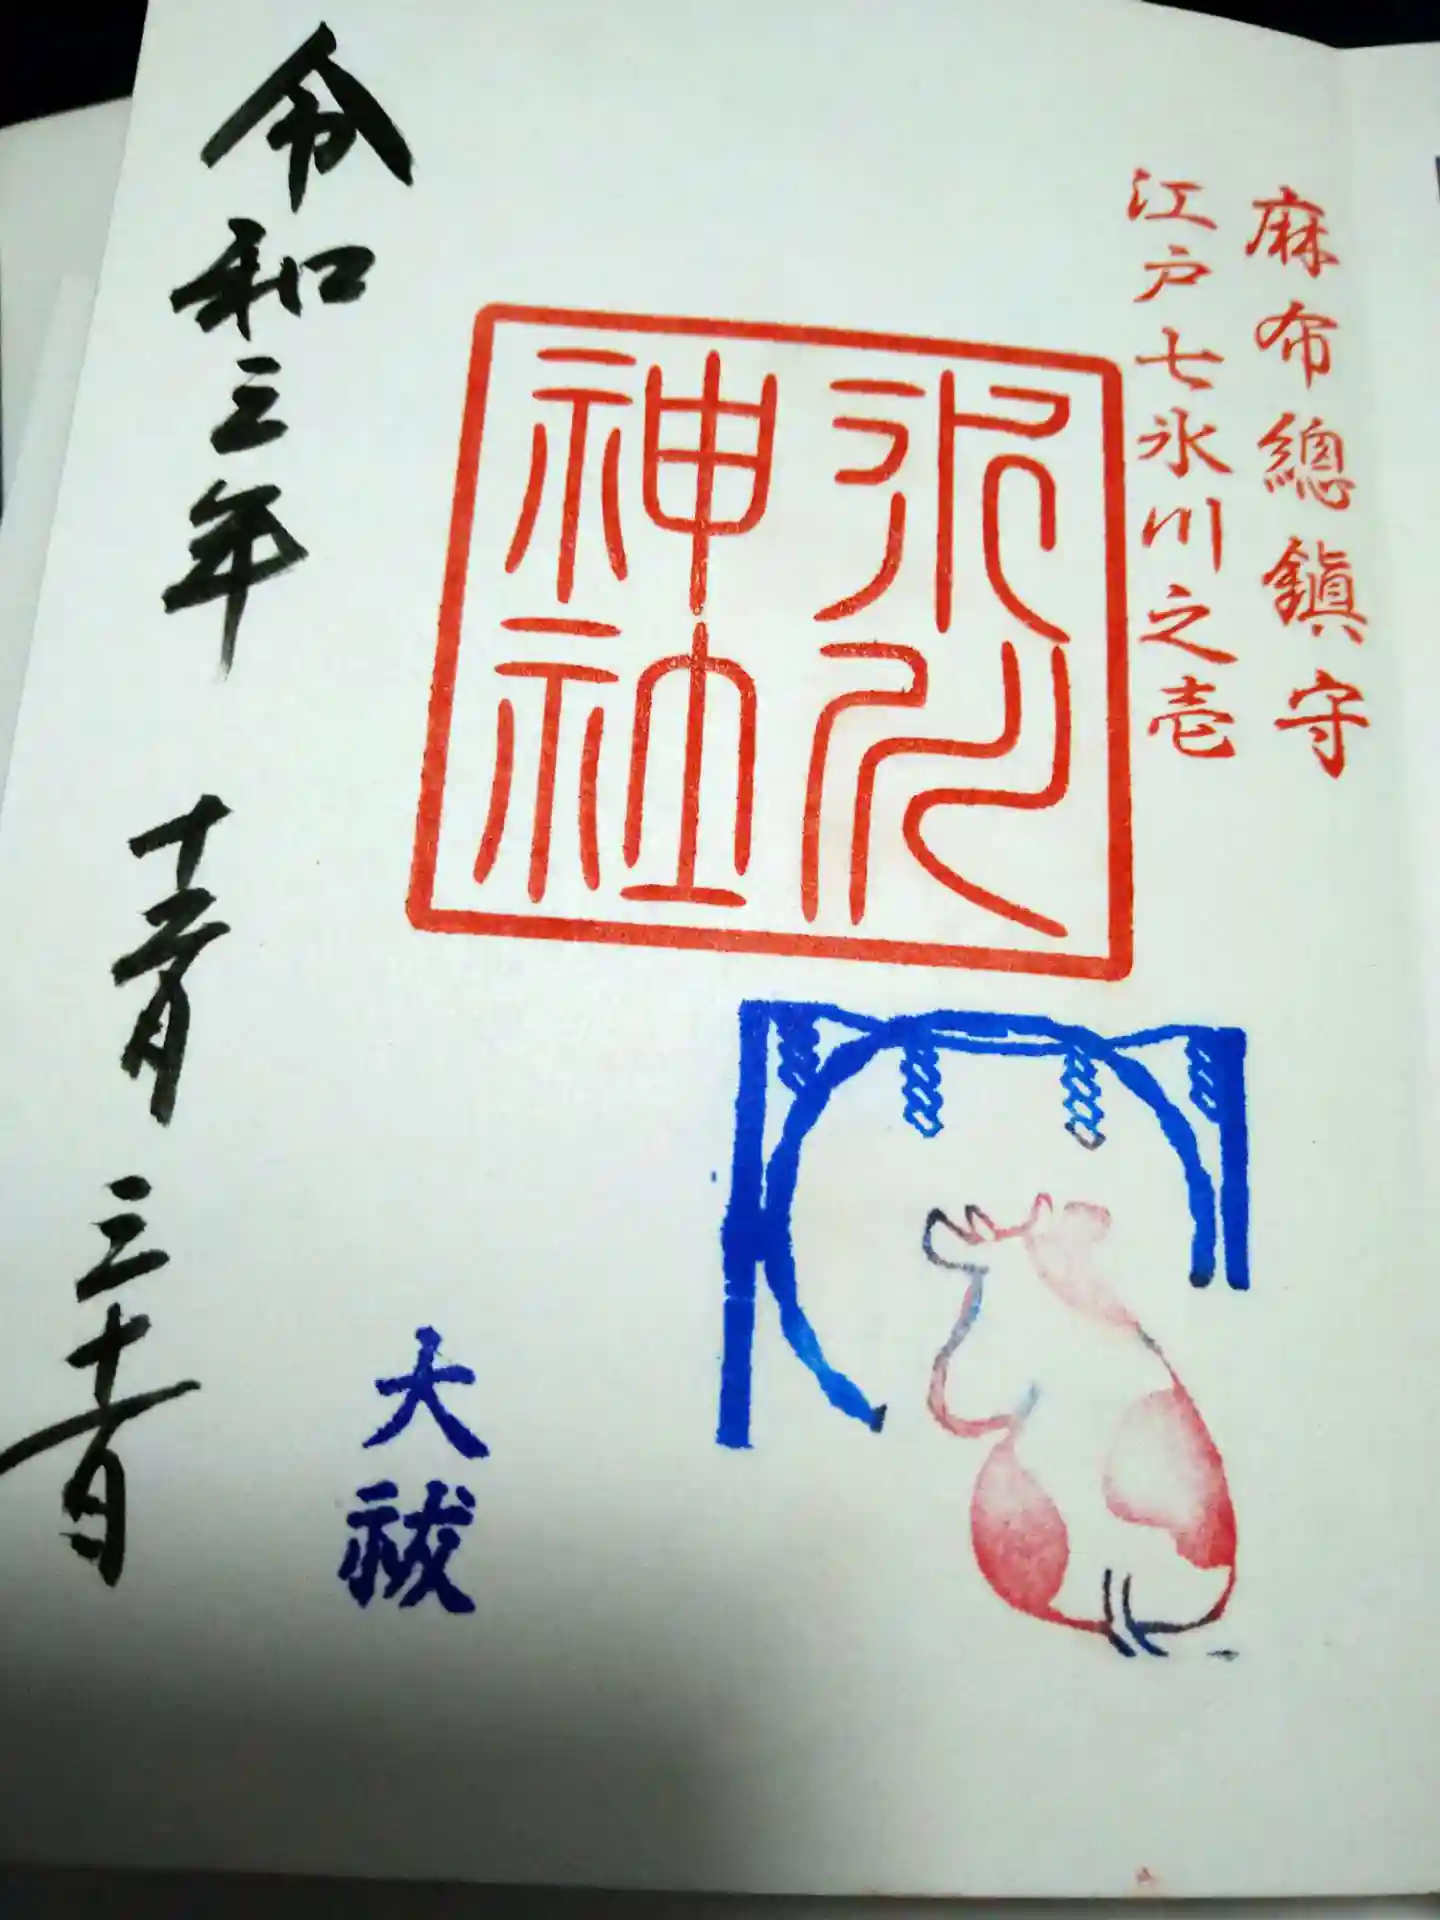 麻布總鎭守
江戸七氷川之壱
氷川
神社
大祓
令和三年 十二月 三十一日